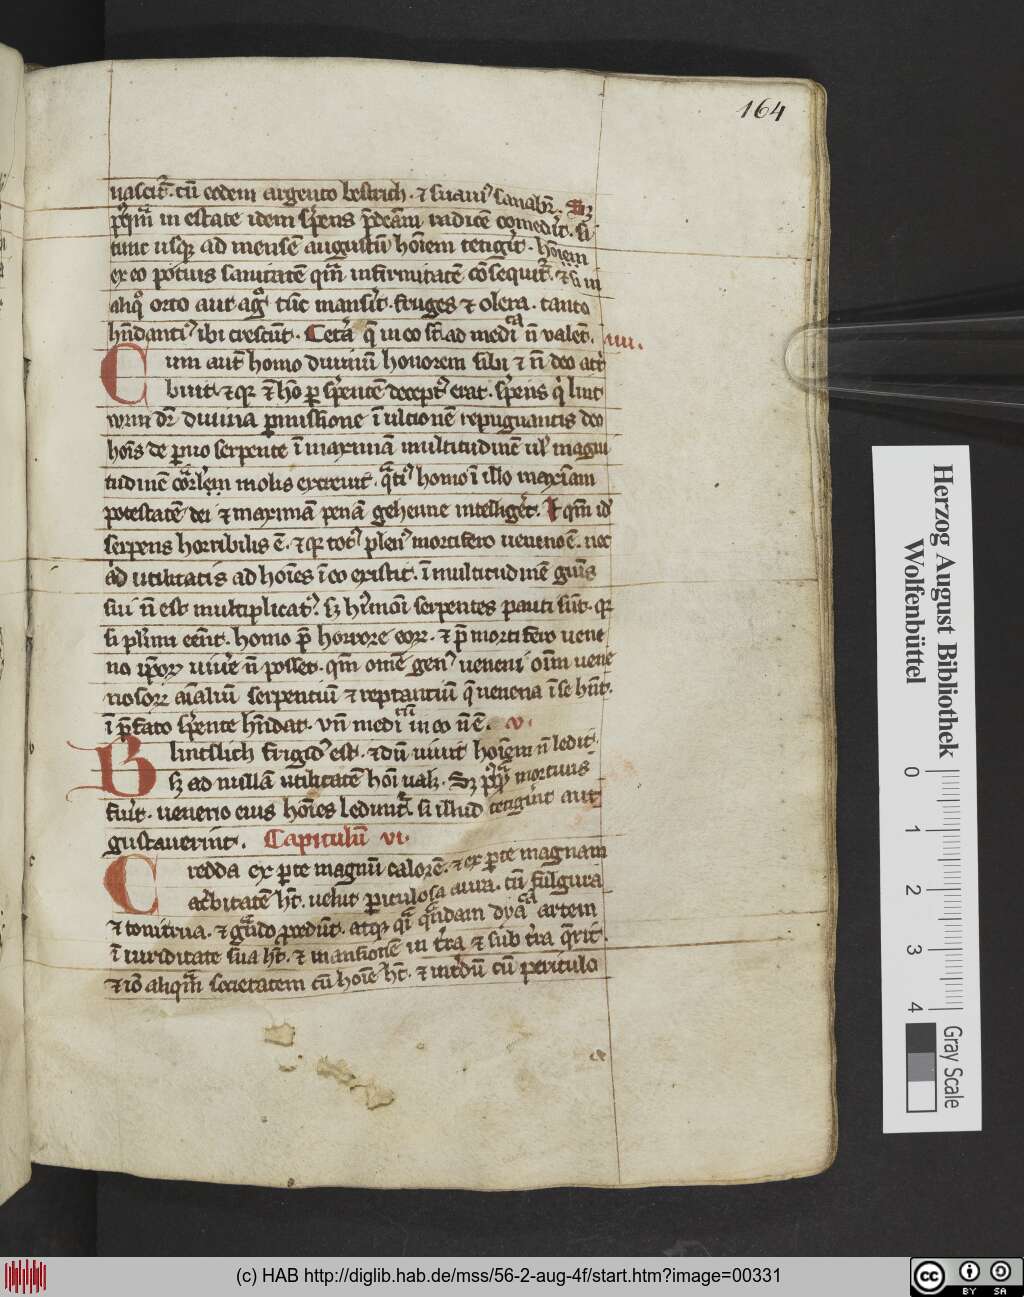 164
nascit̃. cũ eodem argento bestrich. ⁊ suauiꝰ sanabit̃. Sꝫ
pꝰqm̃ in estate idem sp̃ens p̃dcãm radicẽ comedit̃. si
tunc usqꝫ ad mensẽ augustũ hoĩem tetigit̃. hoĩem
ex eo potius sanitatẽ qm̃ infirmitatẽ cõsequit̃. ⁊ si in
aliqͦ orto aut agͦ tũc mansit̃. fruges ⁊ olera. tanto
hñdantiꝰ ibi crescũt. Cetã q̃ in eo st̃ ad medicã ñ valẽt. iiii.
Cum aut̃ homo diuinũ honorem sibi ⁊ ñ deo att̃
buit. ⁊ qꝫ ẽ hõ ꝑ sp̃entẽ deceptꝰ erat. sp̃ens q̃ lint
wrm dr̃ diuina ꝑmissione ĩ ulcionẽ repugnantis deo
hoĩs de ꝑuo serpente ĩ maximã multitudinẽ ul̃ magni
tudinẽ moli͏s excreuit. homo ĩ illo maxĩam
potestatẽ dei ⁊ maximã penã gehenne intelligẽt. Et qm̃ id̃
serpens horribilis ẽ. ⁊ qꝫ totꝰ plenꝰ mortifero ueneno ẽ. nec
ad utilitatis ad hoĩes ĩ eo existit. ĩ multitudinẽ gñis
sui ñ est multiplicatꝰ. sꝫ hꝰmõi serpentes pauci sũt. qꝫ
si pl̃imi eẽnt. homo p̃ horrore eoꝝ. ⁊ p̃ mortifero uene
no ip̃oꝝ uiuẽ ñ posset. qm̃ omẽ genꝰ ueneni oĩm uene
nosoꝝ aĩaliũ serpentiũ ⁊ reptantiũ q̃ uenena ĩ se hñt.
ĩ p̃fato sp̃ente hñdat. vñ medicĩ in eo ñ ẽ. v.
Blintslich frigidꝰ est. ⁊ dũ uiuit hoĩem ñ ledit.
sꝫ ad nullã utilitatẽ hoĩ ualꝫ. Sꝫ pꝰqͣ mortuus
fũit. ueneno eius hoĩes ledunt̃. si illud tetigĩnt aut
gustauerint. Capitulũ vi.
Credda ex ꝑte magnũ calorẽ. ⁊ ex ꝑte magnam
acͥbitatẽ ht̃. uelut ꝑiculosa aura. cũ fulgura
⁊ tonitrua. ⁊ gͣndo p̃cedũt. atqꝫ qͣndam dyã artem
ĩ iuriditate sua ht̃. ⁊ mansionẽ in t̃ra ⁊ sub t̃ra q̃rit.
⁊ iõ aliqm̃ societatem cũ hoĩe ht̃. ⁊ int̃dũ cũ periculo
Herzog August Bibliothek
Wolfenbüttel
0 1 2 3 4
Gray Scale
(c) HAB http://diglib.hab.de/mss/56-2-aug-4f/start.htm?image=00331
cc BY SA